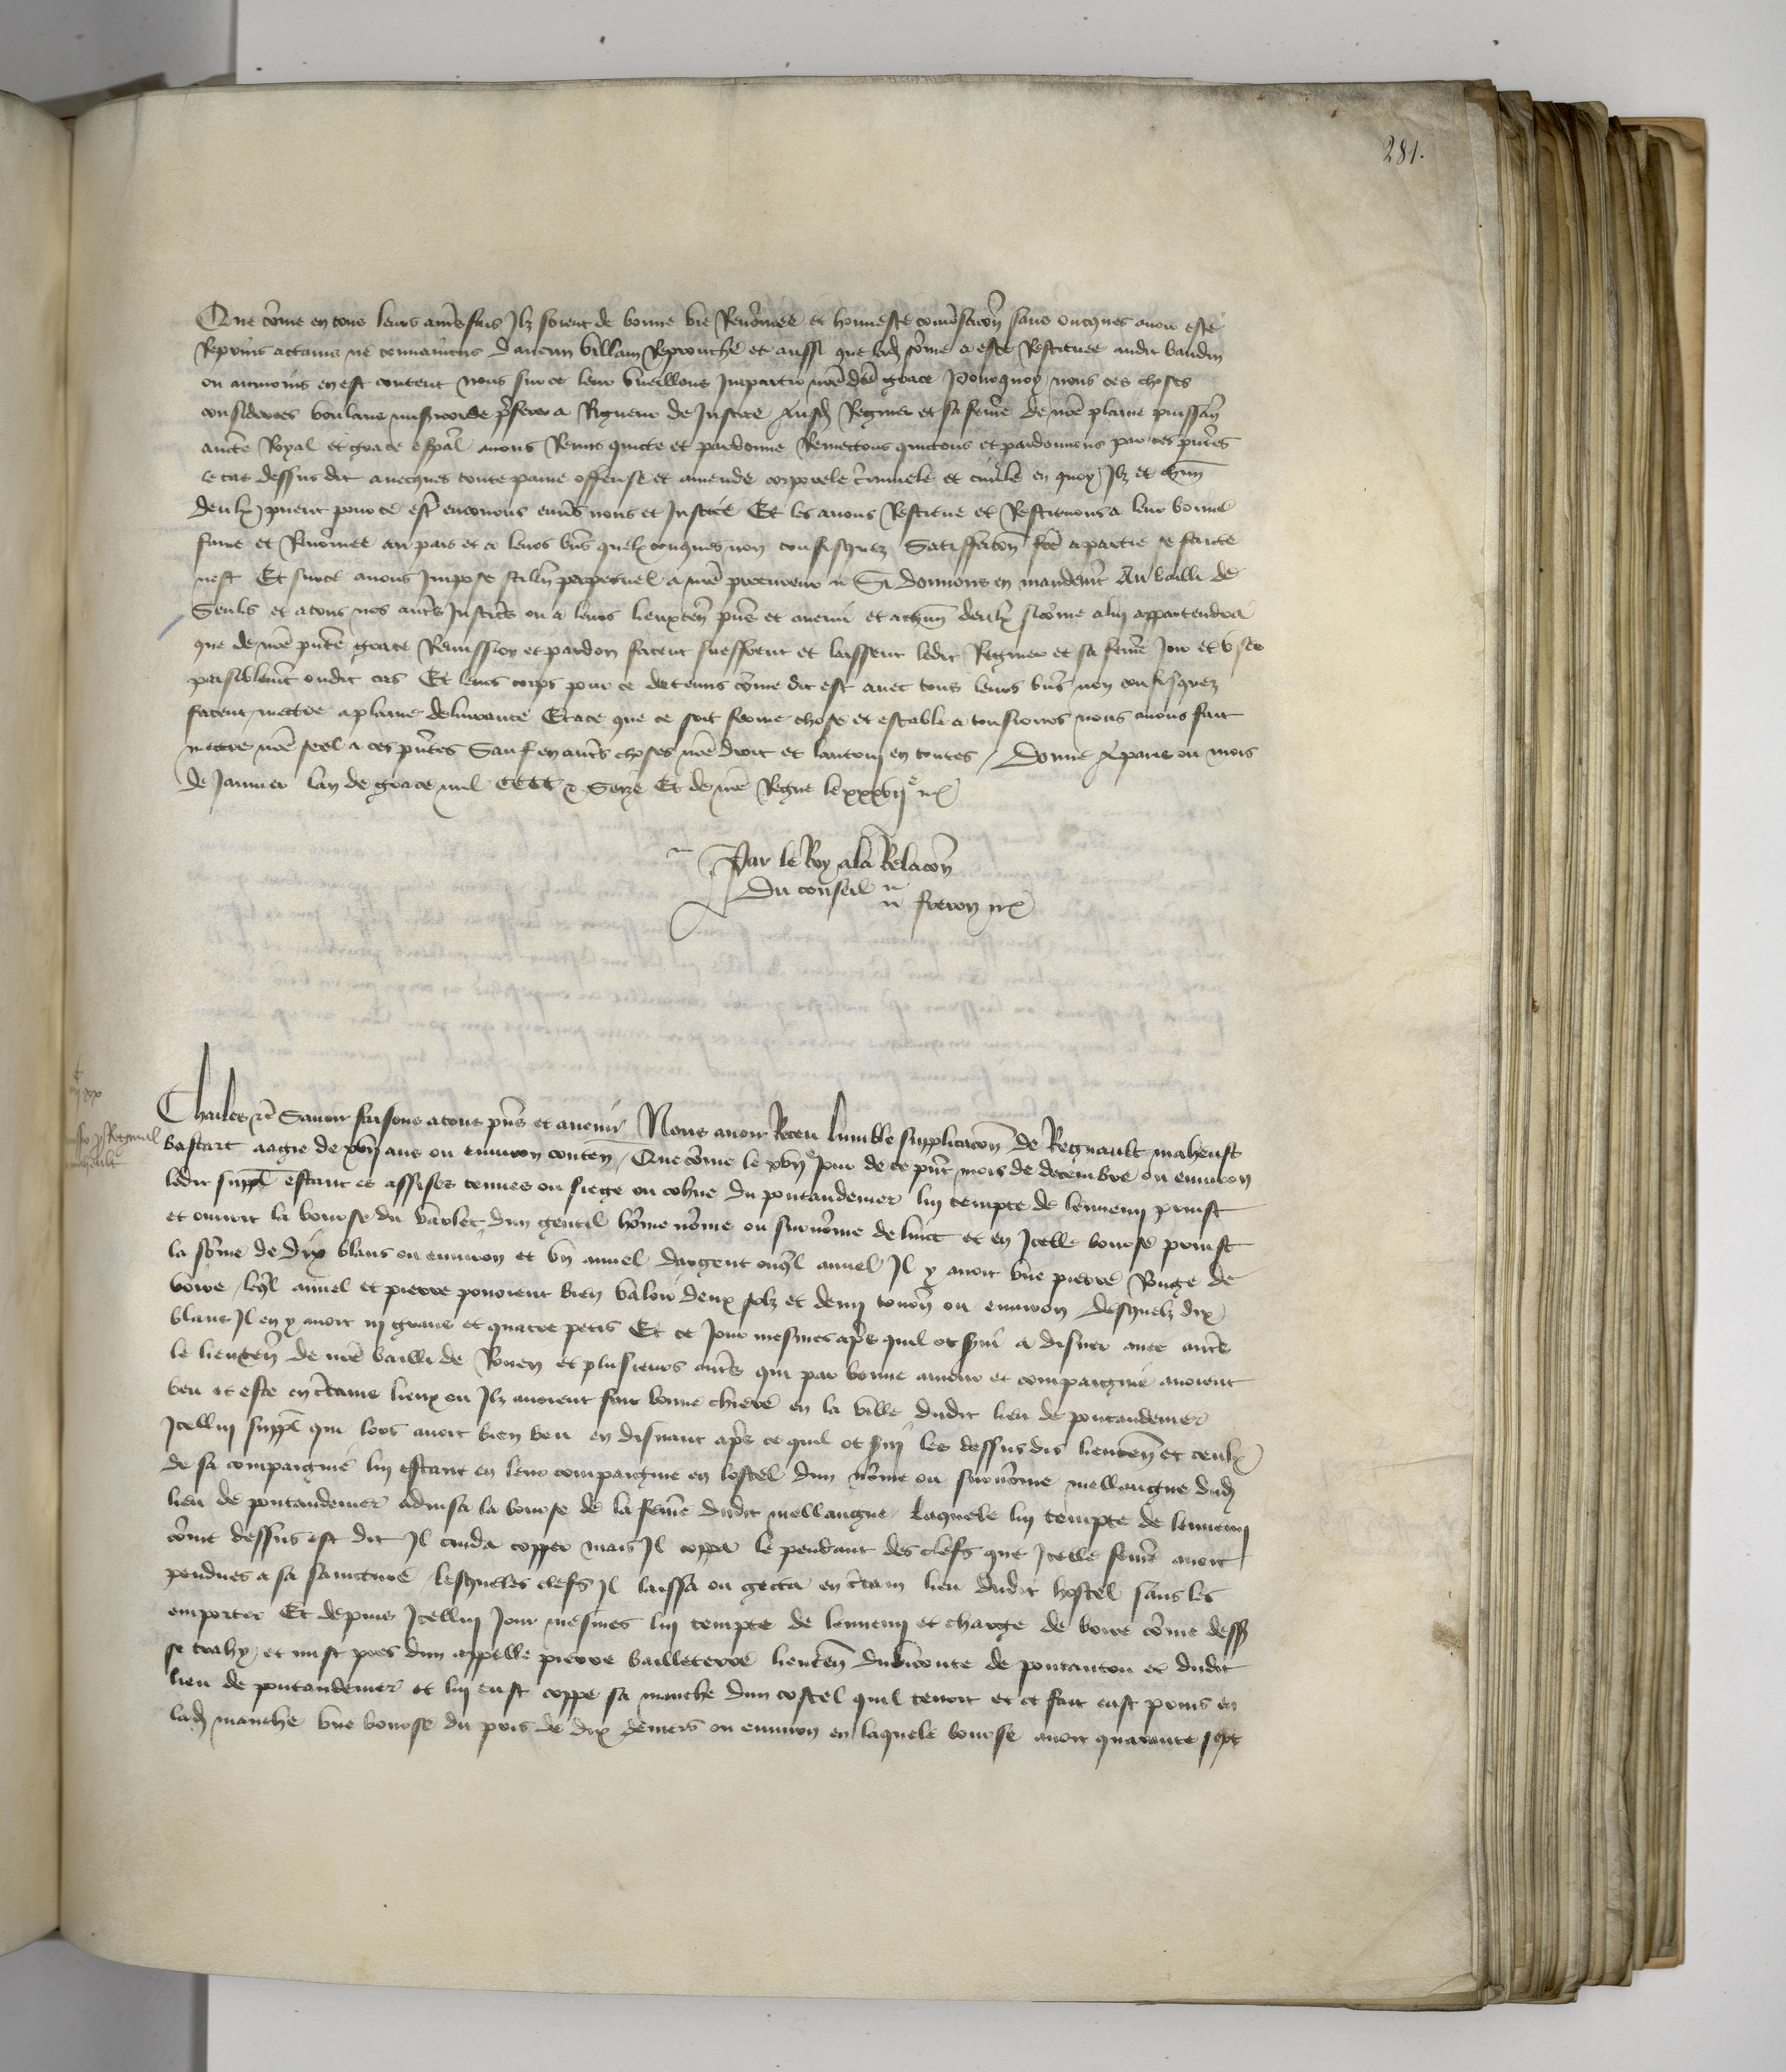 281.
Que cõme en tous leurs autrẽs fais Jlz soient de bonne vie Renõmee et honneste conuersacõn sans oncques auoir este
Reprins attains ne conuaincus daucun villain Reprouche et aussi que ladẽ sõme a este Restituee audit baudin
ou aumoins en est content nous sur ce leur vueillons Jmpartir nrẽ dcẽ grace Pourquoy nous ces choses
considerees voulans misericorde pferer a Rigueur de Justice Ausdẽ Regnier et sa femẽ de nrẽ plaine puissanẽ
auctẽ Royal et grace espãl auons Remis quicte et pardonne Remectons quictons et pardonnons par ces pñtes
le cas dessus dit auecques toute paine offense et amende corporele cĩminele et ciuile en quoy Jlz et chũn
deulx peuent pour ce estrẽ encourus enuẽs nous et Justice Et les auons Restitue et Restituons a leur bonne
fame et Renõmee au pais et a leurs biẽs quelxconques non confisquez Satisfacõn fcẽ a partie se faicte
nest Et sur ce auons Jmpose silẽn perpetuel a nrẽ procureur Si donnons en mandemẽt Au bailli de
Senlis et a tous nos autrẽs Justicẽs ou a leurs lieuxtẽn pñs et auenir et a chũn deulx sicõme a lui appartendra
que de nrẽ pñte grace Remission et pardon facent sueffrent et laissent ledit Regnier et sa femẽ Joir et vser
paisiblemẽt oudit cas Et leurs corps pour ce detenus cõme dit est auec tous leurs biẽs non confisquez
facent mettre a plaine deliurance Et a ce que ce soit ferme chose et estable a tousiours nous auons fait
mettre nrẽ seel a ces pñtes Sauf en autrẽs choses nrẽ droit et lautruy en toutes / Donne A paris ou mois
de Januier lan de grace mil CCCC & Seize Et de nrẽ Regne le xxxvijᵉ
Par le Roy a la Relacõn
Du conseil freron
Charles &c Sauoir faisons a tous pñs et auenir Nous auoir Receu lumble supplicacõn de Regnault maheust
bastart aagie de xviij ans ou enuiron contẽn / Que cõme le xvijᵉ Jour de ce pñt mois de decembre ou enuiron
ledit supplẽ estant es assises tenues ou siege ou cohue du pontaudemer lui tempte de lennemi prinst
et ouurit la bourse du varlet dun gentil hõme nõme ou surnõme de et en Jcelle bourse prinst
la sõme de dix blans ou enuiron et vn annel dargent ouql annel Jl y auoit vne pierre Rouge de
voirre leql annel et pierre pouoient bien valoir deux solz et demi tournẽ ou enuiron desquelz dix
blans Jl en y auoit iij grans et quatre petis Et ce Jour mesmes aprẽs quil ot seruẽ a disner auec autrẽs
le lieutẽn de nrẽ bailli de Rouen et plusieurs autrẽs qui par bonne amour et compaignie auoient
beu et este en cẽtains lieux ou Jlz auoient fait bonne chiere en la ville dudit lieu de pontaudemer
Jcellui supplẽ qui lors auoit bien beu en disnant aprẽs ce quil ot serui les dessus dis lieutẽn et ceulx
de sa compaignie lui estant en leur compaignie en lostel dun nõme ou surnõme mellangue dudẽ
lieu de pontaudemer aduisa la bourse de la femẽ dudit mellangue Laquele lui tempte de lennemi
cõme dessus est dit Jl cuida copper mais Jl coppa le pendant des clefs que Jcelle femẽ auoit
pendues a sa saincture lesqueles clefs Jl laissa ou gecta en cẽtain lieu dudit hostel sans les
emporter Et depuis Jcellui Jour mesmes lui tempte de lennemi et charge de boire cõme dessẽ
se trahy et mist pres dun appelle pierre vailleterre lieutẽn du viconte de pontautou et dudit
lieu de pontaudemer et lui eust coppe sa manche dun costel quil tenoit et ce fait eust prins en
ladẽ manche vne bourse du pois de dix deniers ou enuiron en laquele bourse auoit quarante sept